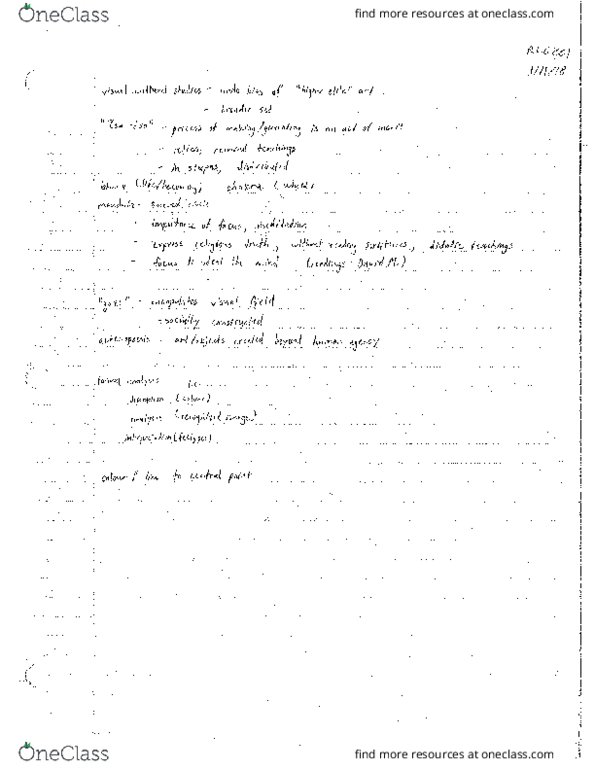 OneClass
find more resources at oneclass.com
visual cultural studies - undo bias of "higher elite" art
- broader set
"Tsa-tsa" - process of making/generating is an act of merit
- relics, remind teachings
- in stupas, distributed
mandala - sacred circle
- importance of focus, meditation
- express religious truth, without reading scriptures, didactic teachings
- focus to the mind (readings: David M.)
"gaze" - encapsulates visual field
- socially constructed
autopoesis - art/objects created beyond human agency
formal analysis i.e.
description (colour)
analysis
interpretation
colour & line to central point
OneClass
find more resources at oneclass.com